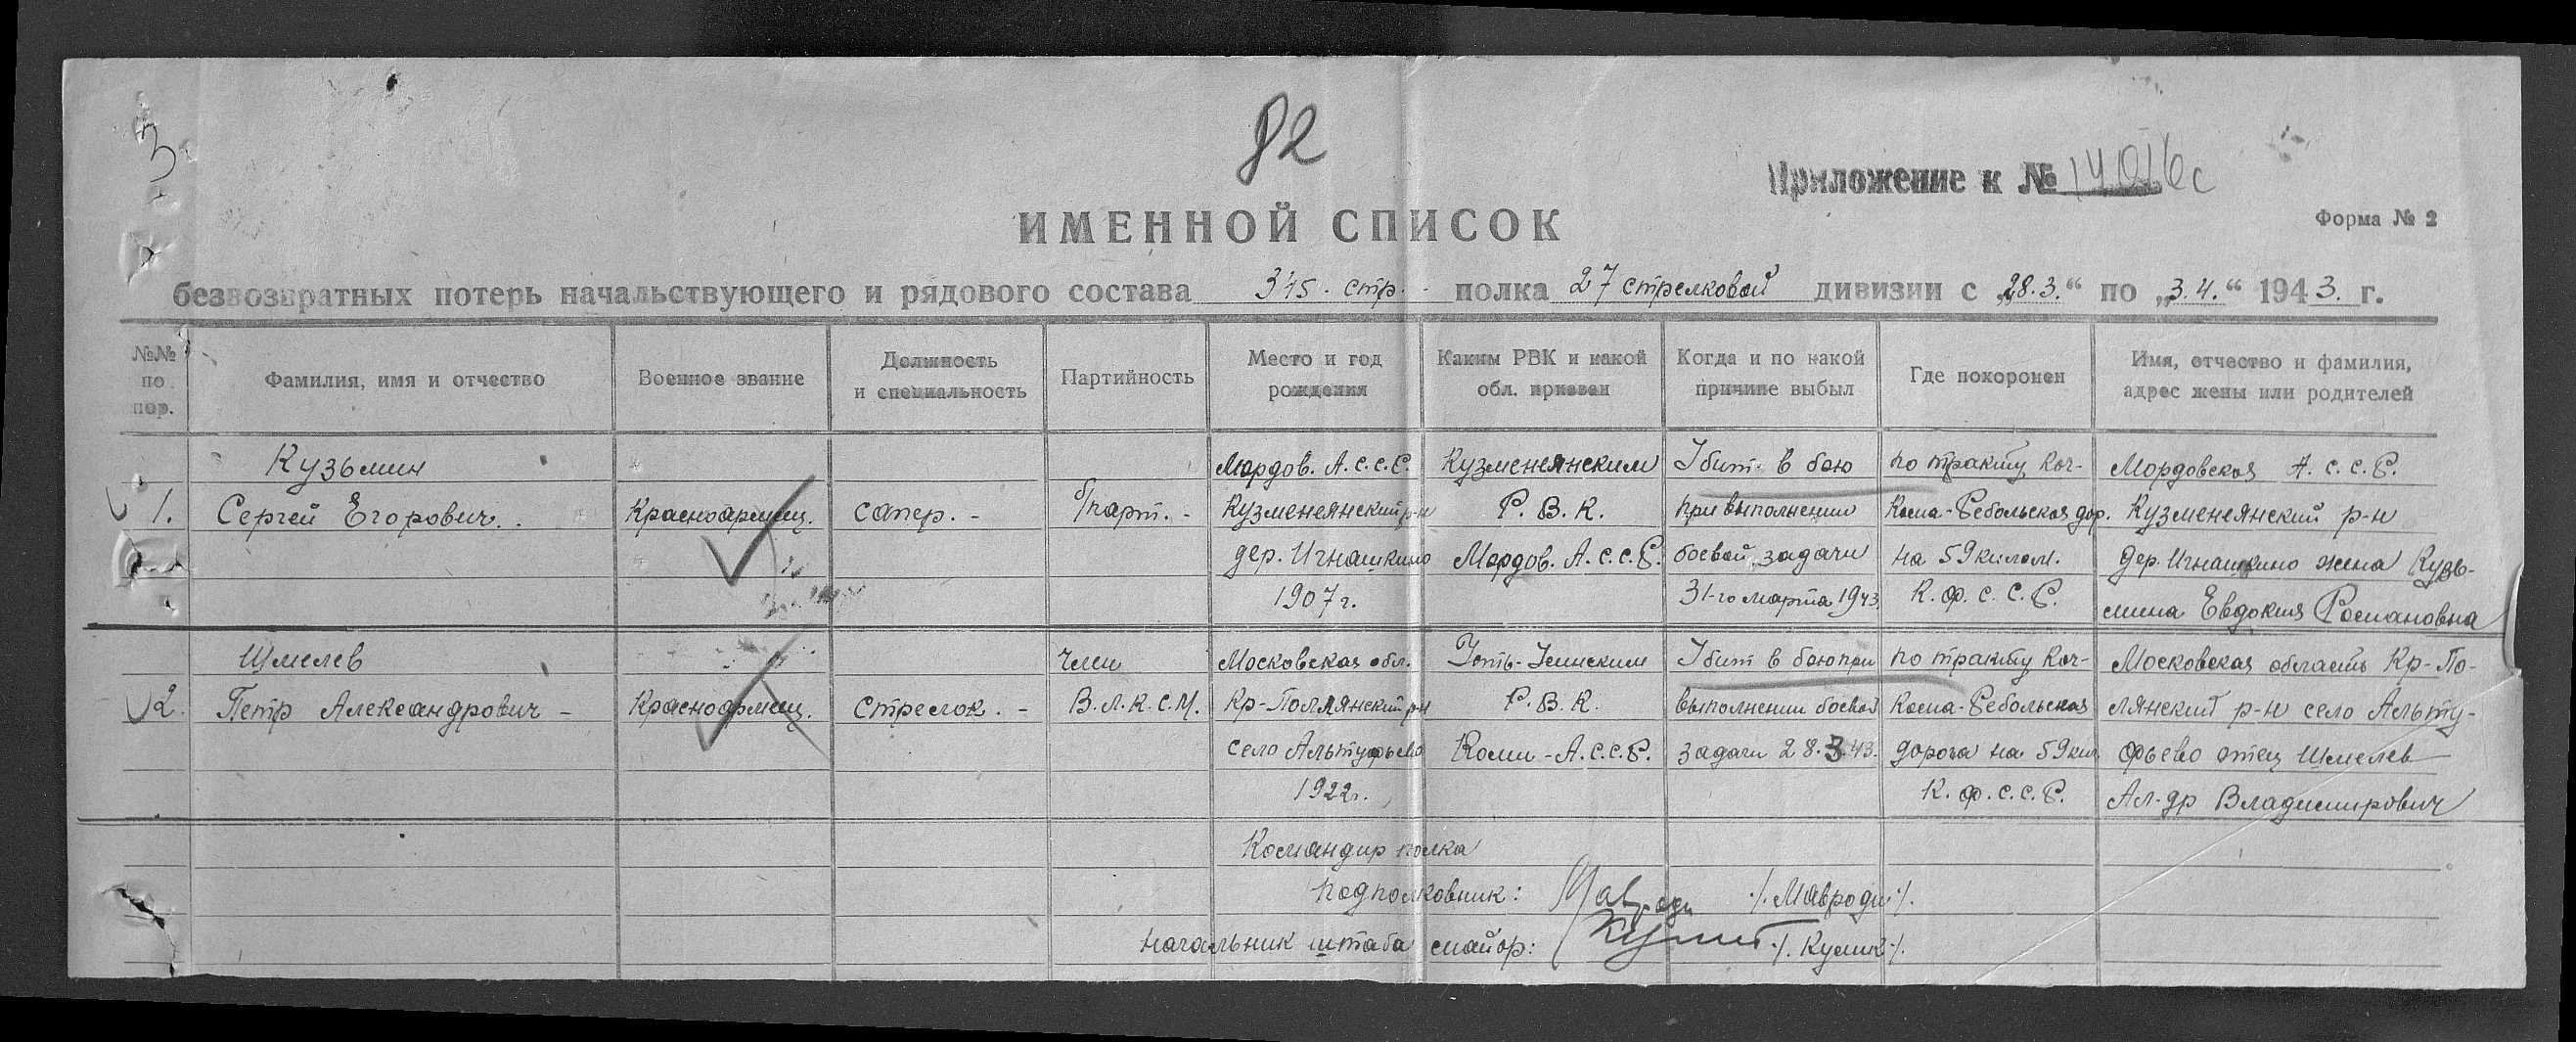 3
82
Приложение к № 14016с
Форма № 2
ИМЕННОЙ СПИСОК
безвозвратных потерь начальствующего и рядового состава 345. стр. полка 27 стрелковой дивизии с „28.3.“ по „3.4.“ 1943. г.
№№ по пор.
Фамилия, имя и отчество
Военное звание
Должность и специальность
Партийность
Место и год рождения
Каким РВК и какой обл. призван
Когда и по какой причине выбыл
Где похоронен
Имя, отчество и фамилия, адрес жены или родителей
Кузьмин Мордов. А.С.С.Р. Кузменеянским Убит в бою по тракту Коч- Мордовская А.С.С.Р.
1. Сергей Егорович. Красноармеец. сапер. - б/парт. - Кузменеянский р-н Р.В.К. при выполнении кома-Ребольская дор. Кузменеянский р-н
дер. Игнашкино Мордов. А.С.С.Р. боевой задачи на 59 килом. дер. Игнашкино жена Кузь-
1907 г. 31-го марта 1943. К.Ф.С.С.Р. мина Евдокия Романовна
Шмелев Член Московская обл. Усть-Усинским Убит в бою при по тракту Коч- Московская область Кр-По-
2. Петр Александрович - Красноармеец. Стрелок. - В.Л.К.С.М. Кр-Полянский р-н Р.В.К. выполнении боевой кома-Ребольская лянский р-н село Альту-
село Альтуфьево Коми-А.С.С.Р. задачи 28.3.43. дорога на 59 кил. фьево отец Шмелев
1922 г. К.Ф.С.С.Р. Ал-др Владимирович
Командир полка
подполковник: Мавроди /. Мавроди ./.
Начальник штаба майор: Кулик ./. Кулик ./.